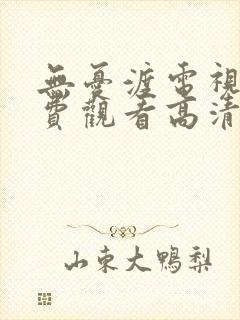 無憂渡電視
費觀看高清
山東大鴨梨